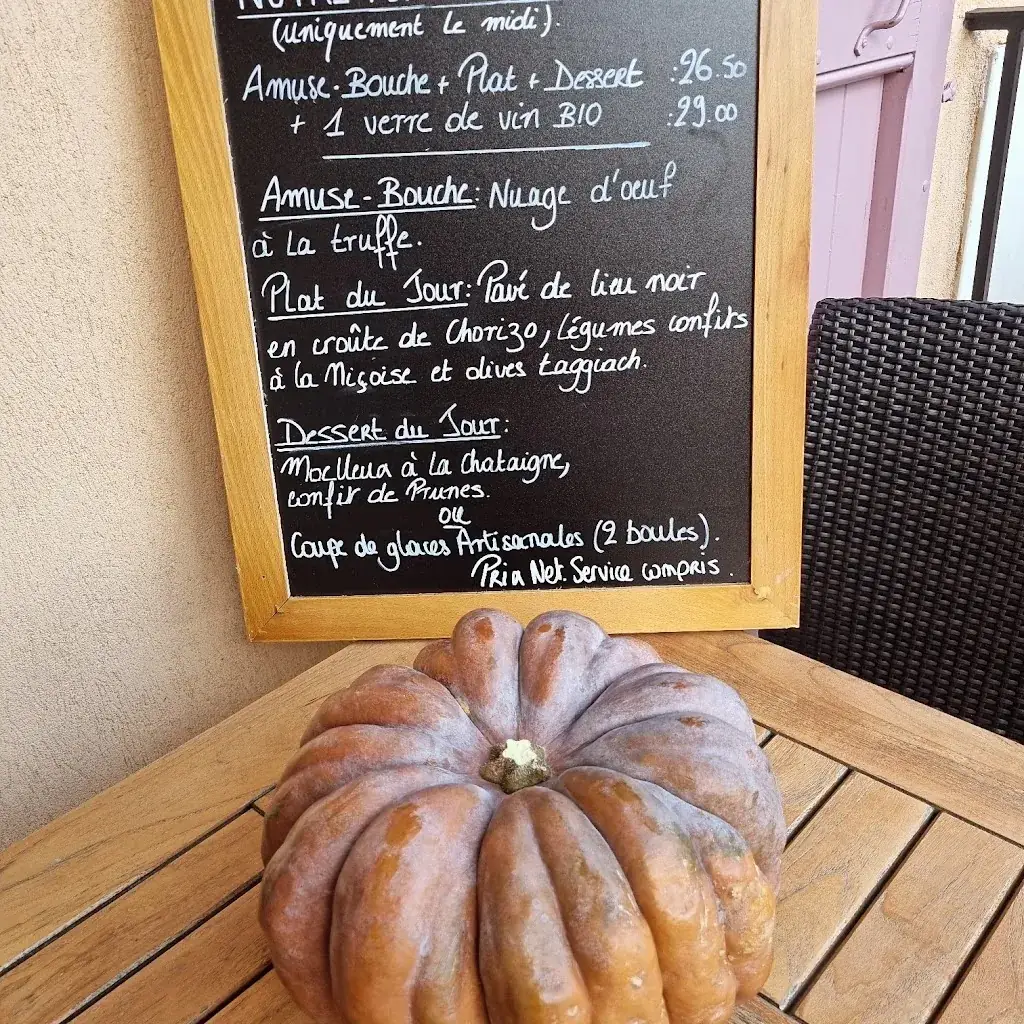 NOTRE
(uniquement le midi).
Amuse-Bouche + Plat + Dessert :26.50
+ 1 verre de vin BIO :29.00
Amuse-Bouche: Nuage d'oeuf
à la truffe.
Plat du Jour: Pavé de lieu noir
en croûte de Chorizo, légumes confits
à la Niçoise et olives taggiach.
Dessert du Jour:
Moelleux à la Chataigne,
confit de Prunes.
ou
Coupe de glaces Artisanales (2 boules).
Prix Net. Service compris.